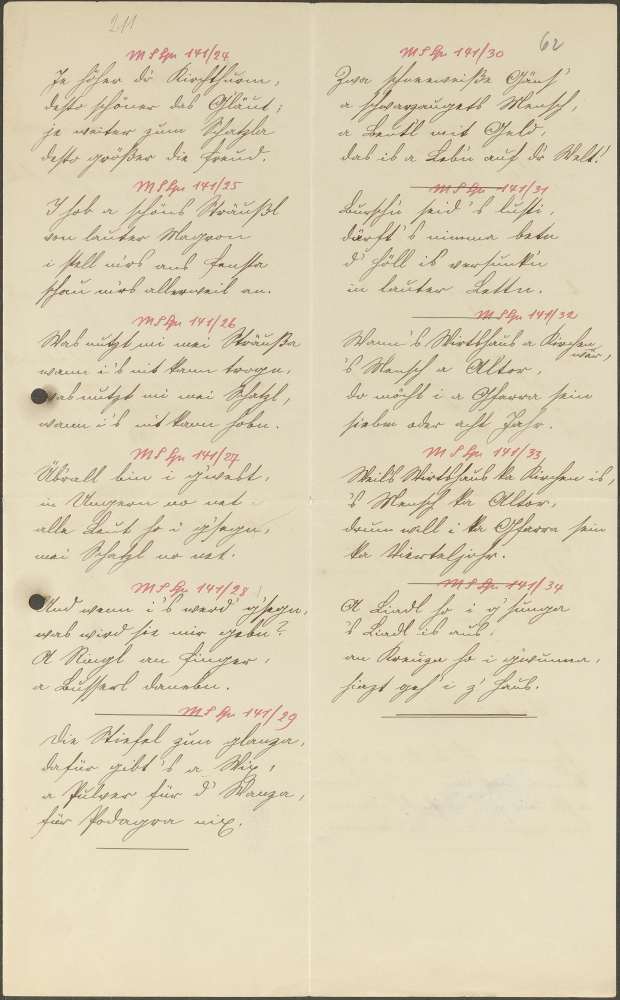 211
MS Spr 141/24
Je höher dr Kirchthurm,
desto schöner das Gläut;
je weiter zum Schatzla
desto größer die Freud.
MS Spr 141/25
I hob a schöns Sträußl
von lauter Magron
i stell mirs ans Fensta
schau mirs allerweil an.
MS Spr 141/26
Was nutzt mi mei Sträußla
wann i's nit kann trogn,
was nutzt mi mei Schatzl,
wann i's nit kann hobn.
MS Spr 141/27
Übrall bin i g'west,
in Ungern no net
alle Leut ho i g'segn,
mei Schatzl no net.
MS Spr 141/28
Und wenn i's werd g'segn,
was wird sie mir gebn?
A Ringl an Finger,
a Busserl danebn.
MS Spr 141/29
Die Stiefel zum glanza,
dafür gibt's a Wix,
a Pulver für d' Wanza,
für Podagra nix.
62
MS Spr 141/30
Zwoa schneeweiße Gäns'
a schwarzaugets Mensch,
a Beutl mit Geld,
das is a Lebn auf dr Welt!
MS Spr 141/31
Burschn seid's lusti,
därft's nimma betn
d' Höll is versunkn
in lauter Lettn.
MS Spr 141/32
Wann's Wirtshaus a Kirchen wär,
's Mensch a Altor,
do möcht i a Pfarra sein
siebn oder acht Johr.
MS Spr 141/33
Weils Wirtshaus ka Kirchen is,
's Mensch ka Altor,
drum will i ka Pfarra sein
ka Vierteljohr.
MS Spr 141/34
A Liadl ho i g'sunga
's Liadl is aus,
an Kreuza ho i gwunna,
hiazt geh i z' Haus.